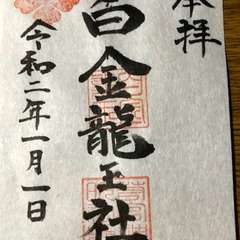 奉拝
金龍王社
令和二年一月一日